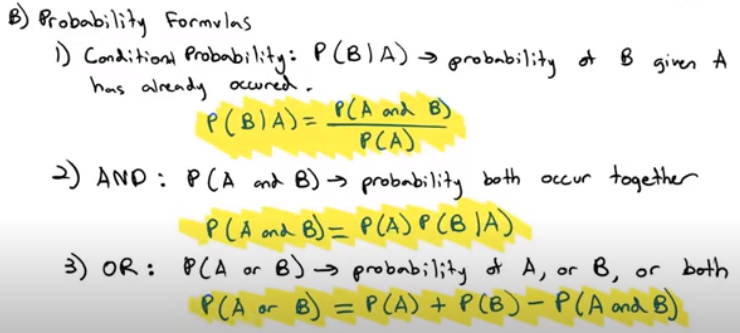 B) Probability Formulas
1) Conditional Probability: P(B|A) → probability of B given A
has already occured.
P(B|A) = P(A and B)
P(A)
2) AND: P(A and B) → probability both occur together
P(A and B) = P(A) P(B|A)
3) OR: P(A or B) → probability of A, or B, or both
P(A or B) = P(A) + P(B) - P(A and B)